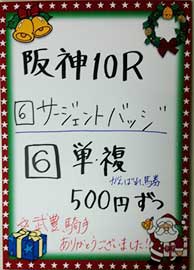 阪神10R
⑥サージェントバッジ
⑥ 単・複
がんばれ馬券
500円ずつ
武豊騎手
ありがとうございました!